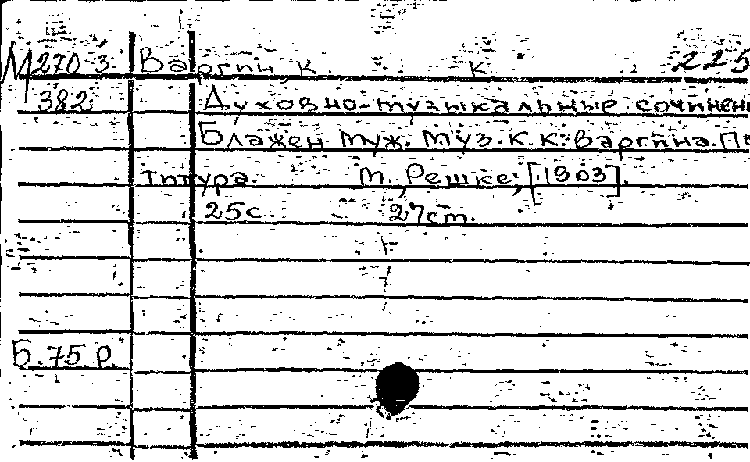 М 270-3 Варгин, К. К. 225
382 Духовно-музыкальные сочинен
Блажен муж. Муз. К. К. Варгина. Па
титура. М., Решке, [1903].
25с. 27см.
Б. 75 р.